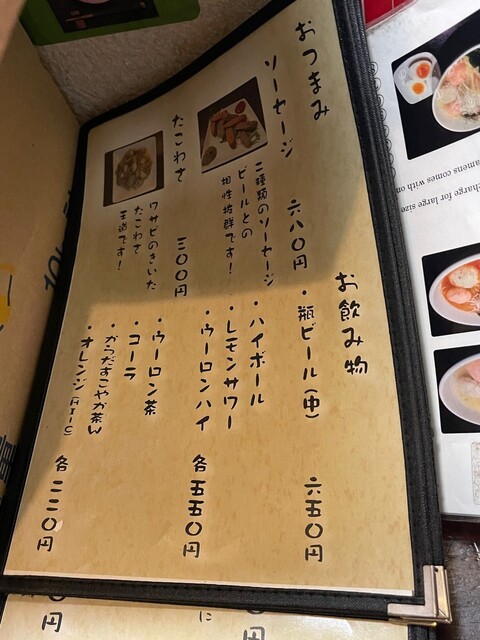 おつまみ
ソーセージ 六八〇円
二種類のソーセージ
ビールとの
相性抜群です！
たこわさ 三〇〇円
ワサビのきいた
たこわさ
王道です！
お飲み物
・瓶ビール(中) 六五〇円
・ハイボール
・レモンサワー
・ウーロンハイ 各五五〇円
・ウーロン茶
・コーラ
・からだすこやか茶W
・オレンジ 各二二〇円
円
に
円
amens comes with on
charge for large size